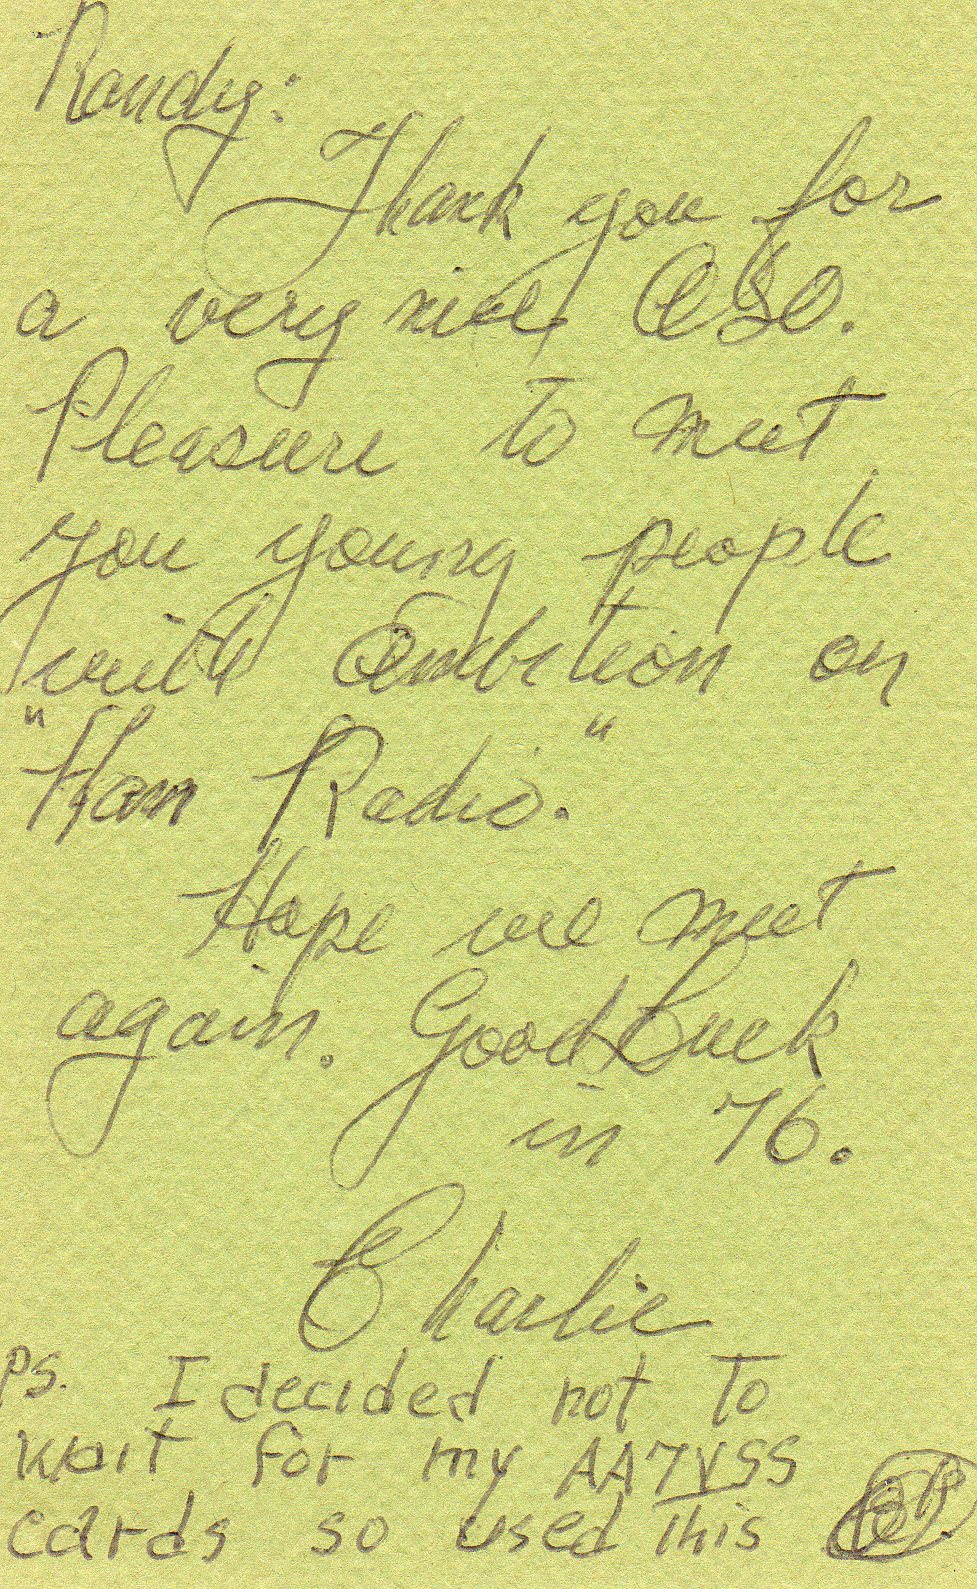 Randy:
Thank you for
a very nice QSO.
Pleasure to meet
you young people
with ambition on
"Ham Radio."
Hope we meet
again. Good Luck
in '76.
Charlie
PS. I decided not to
wait for my AA7VSS
cards so used this